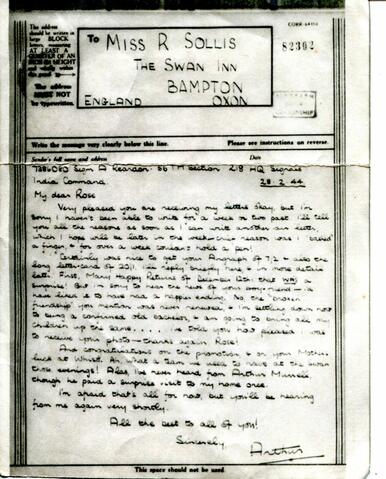 The address
should be written in
large BLOCK
letters,
AT LEAST A
QUARTER OF AN
INCH IN HEIGHT
and wholly within
this panel
The address
MUST NOT
be typewritten.
To MISS R SOLLIS
THE SWAN INN
BAMPTON
ENGLAND OXON
82302
Write the message very clearly below this line. Please see instructions on reverse.
Sender's full name and address Date
Sigm A Reardon. Section 218 HQ Signals
India Command 28.2.44
My dear Rose
Very pleased you are receiving my letters okay, but I'm
sorry I haven't been able to write for a week or two past. I'll tell
you all the reasons as soon as I can write another air letter,
which I hope will be later in the week. One reason was I
a finger, & for over a week couldn't hold a pen.
Certainly was nice to get your Airgraph of 7.2 & also the
long letter-card of 20.1. I'll reply briefly here & in more detail
later. First, Many Happy Returns of December that WAS a
surprise! But I'm sorry to hear the news of your boy-friend - I'd
have liked it to have had a happier ending. No, the "broken
friendship" you mention was not renewed & I'm settling down now
to being a confirmed old bachelor, & am going to bring all my
children up the same..... I've told you how pleased I was
to receive your photo - thanks again Rose!
And congratulations on the promotion, & on your Mother's
luck at Whist. Ah, what a time we used to have at the swan
those evenings! Alas, I've never heard from Arthur
though he paid a surprise visit to my home once.
I'm afraid that's all for now, but you'll be hearing
from me again very shortly.
All the best to all of you!
Sincerely,
Arthur
This space should not be used.